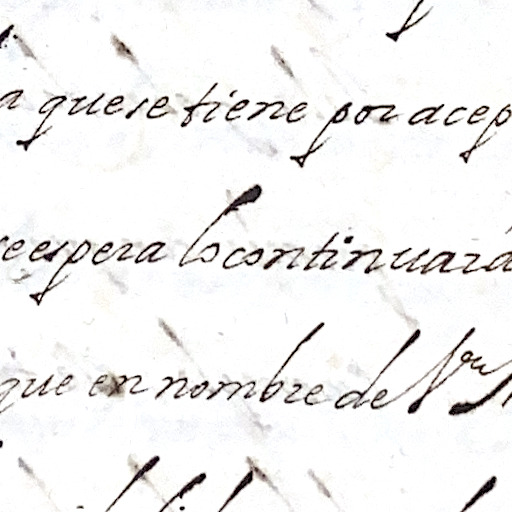 a que se tiene por acep
se espera lo continuará
que en nombre de